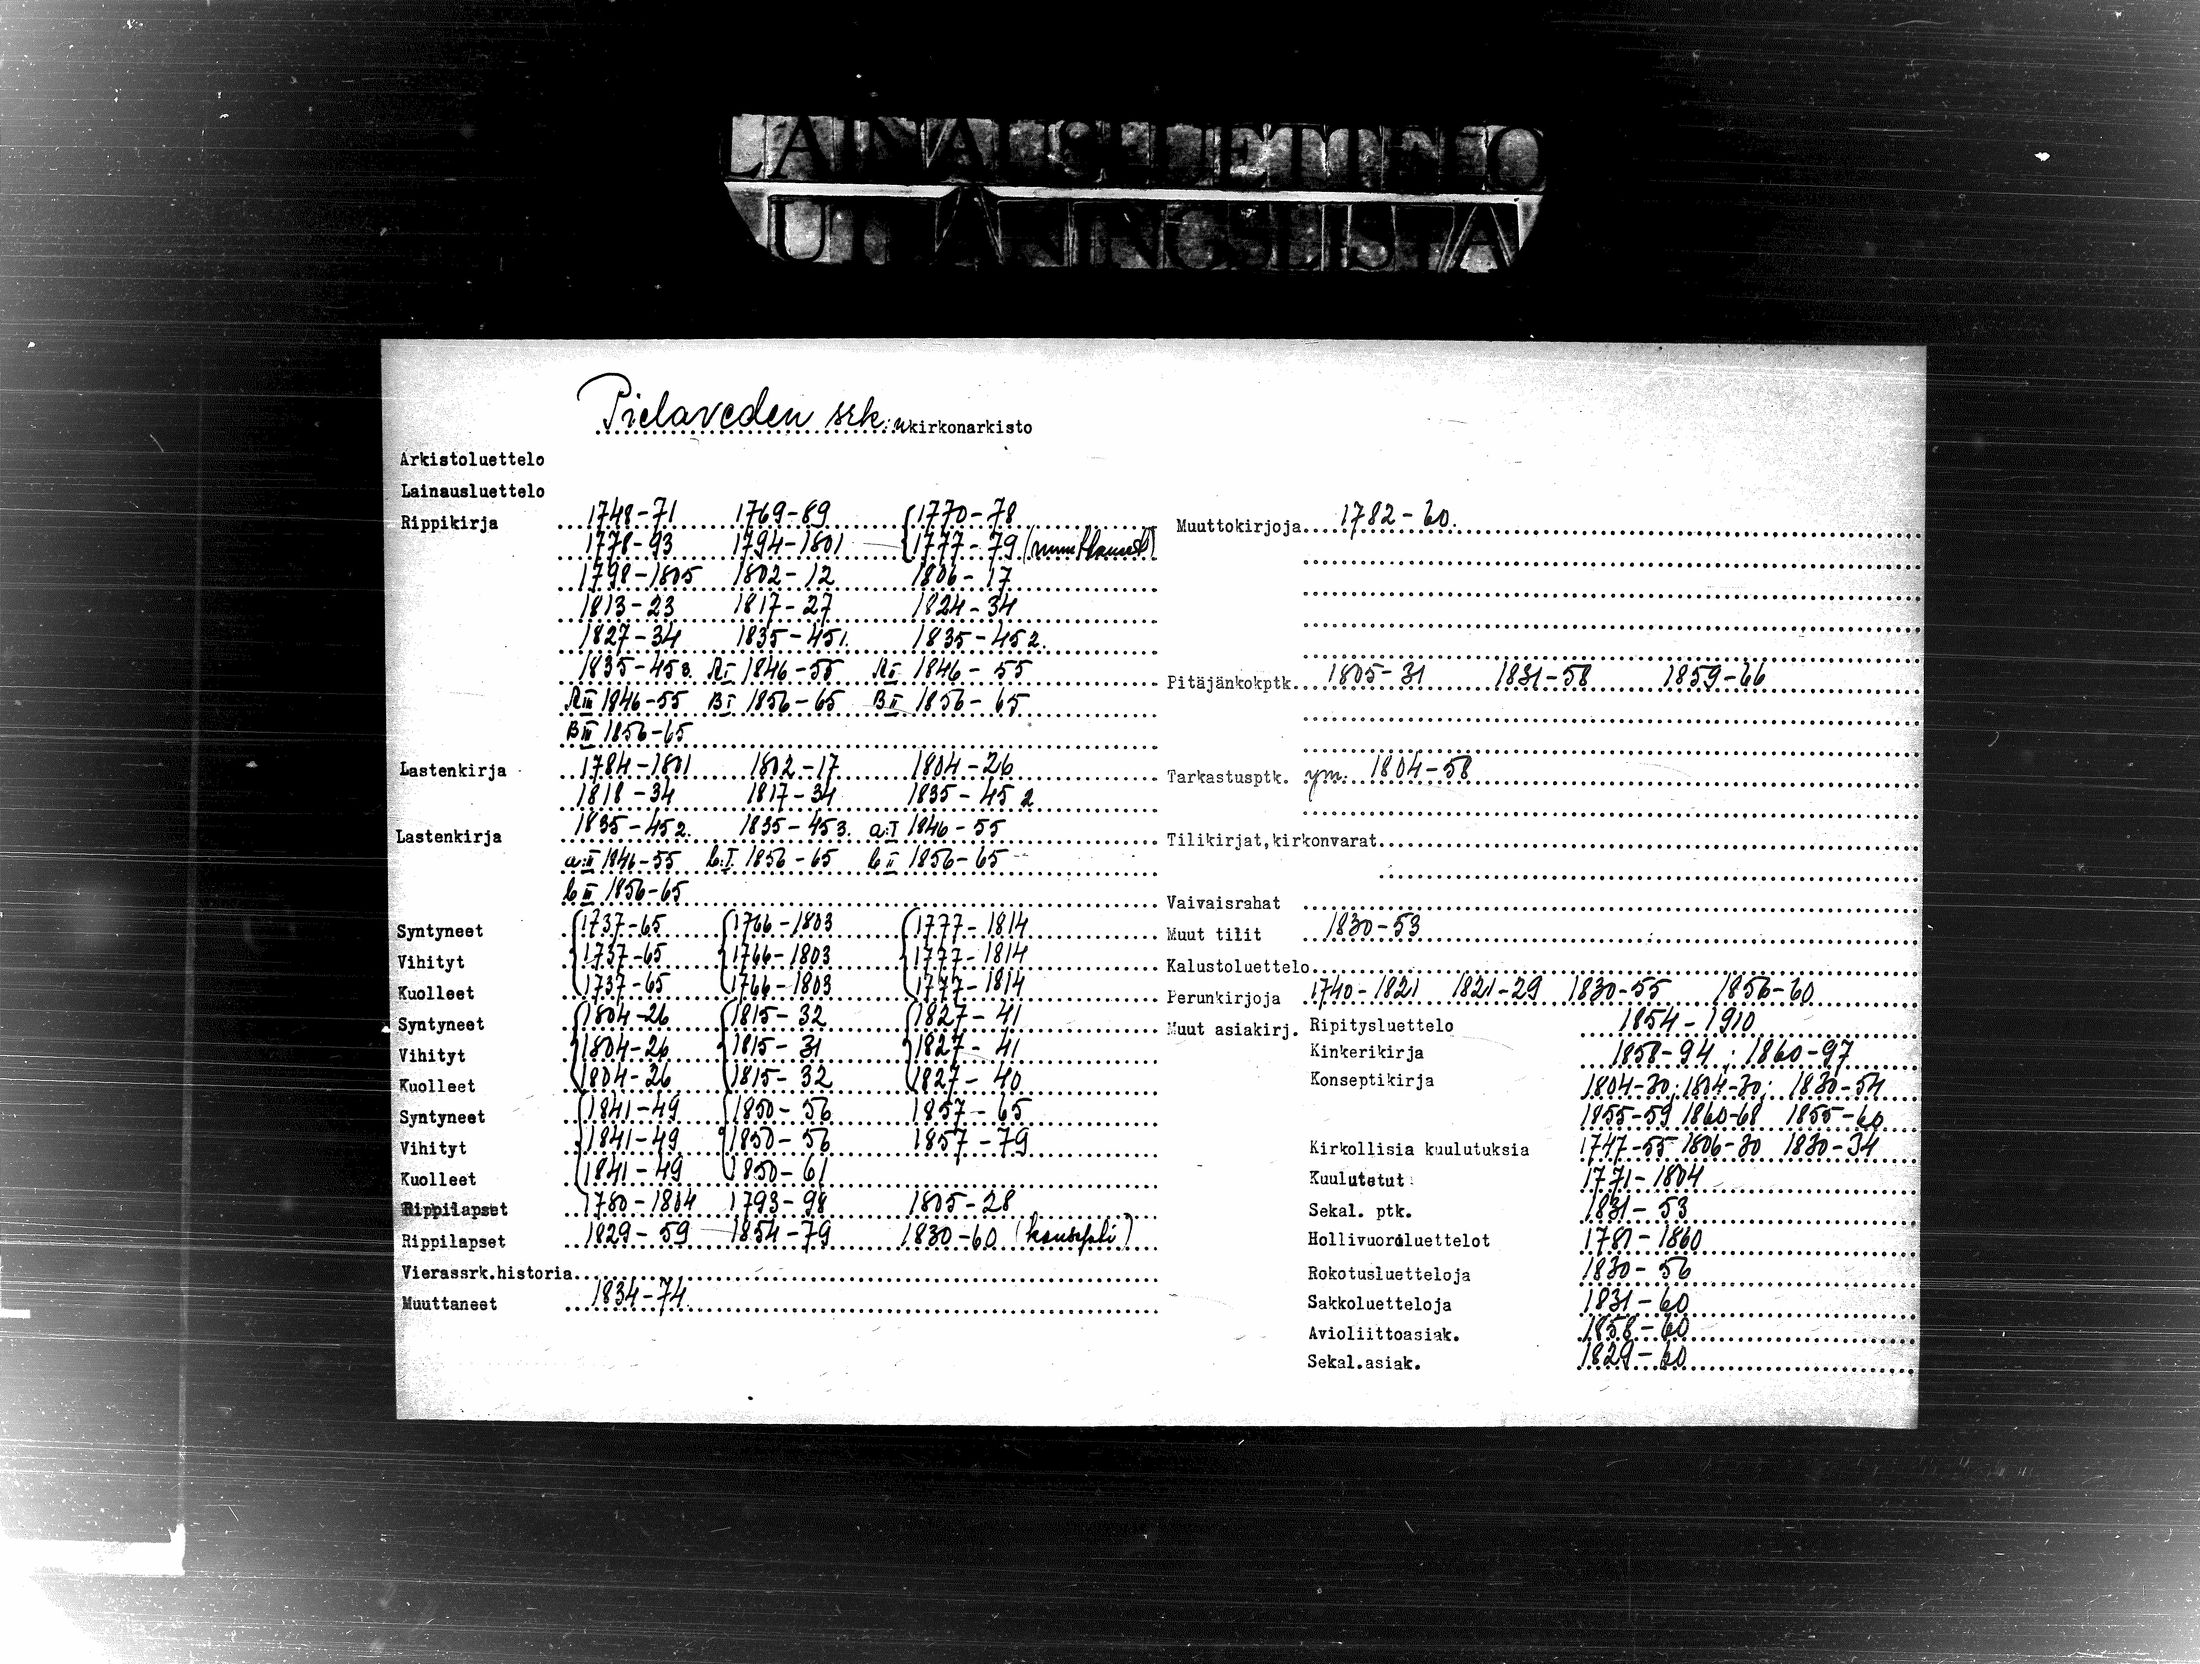 LAINAUSLUETTELO
UTLÅNINGSLISTA
Pielaveden srk:n kirkonarkisto
Arkistoluettelo
Lainausluettelo
Rippikirja 1748-71 1769-89 1770-78
1778-93 1794-1801 1777-79
1798-1805 1802-12 1806-17
1813-23 1817-27 1824-34
1827-34 1835-45 1. 1835-45 2.
1835-45 3. A I 1846-55 A II 1846-55
A III 1846-55 B I 1856-65 B II 1856-65
B III 1856-65
Lastenkirja 1784-1801 1802-17 1804-26
1818-34 1817-34 1835-45 2
Lastenkirja 1835-45 2. 1835-45 3. a:I 1846-55
a:II 1846-55 b:I 1856-65 b II 1856-65
b III 1856-65
Syntyneet 1737-65 1766-1803 1777-1814
Vihityt 1737-65 1766-1803 1777-1814
Kuolleet 1737-65 1766-1803 1777-1814
Syntyneet 1804-26 1815-32 1827-41
Vihityt 1804-26 1815-31 1827-41
Kuolleet 1804-26 1815-32 1827-40
Syntyneet 1841-49 1850-56 1857-65
Vihityt 1841-49 1850-56 1857-79
Kuolleet 1841-49 1850-61
Rippilapset 1780-1804 1793-98 1805-28
Rippilapset 1829-59 1854-79 1830-60 (konsepti)
Vierassrk.historia
Muuttaneet 1834-74
Muuttokirjoja 1782-60.
Pitäjänkokptk. 1805-31 1831-58 1859-66
Tarkastusptk. ym. 1804-58
Tilikirjat,kirkonvarat
Vaivaisrahat
Muut tilit 1830-53
Kalustoluettelo
Perunkirjoja 1740-1821 1821-29 1830-55 1856-60
Muut asiakirj. Ripitysluettelo 1854-1910
Kinkerikirja 1858-94 ; 1860-97
Konseptikirja 1804-30; 1804-30; 1830-54
1855-59 1860-68 1855-60
Kirkollisia kuulutuksia 1747-55 1806-30 1830-34
Kuulutetut 1771-1804
Sekal. ptk. 1831-53
Hollivuoroluettelot 1781-1860
Rokotusluetteloja 1830-56
Sakkoluetteloja 1831-60
Avioliittoasiak. 1858-60
Sekal.asiak. 1829-60